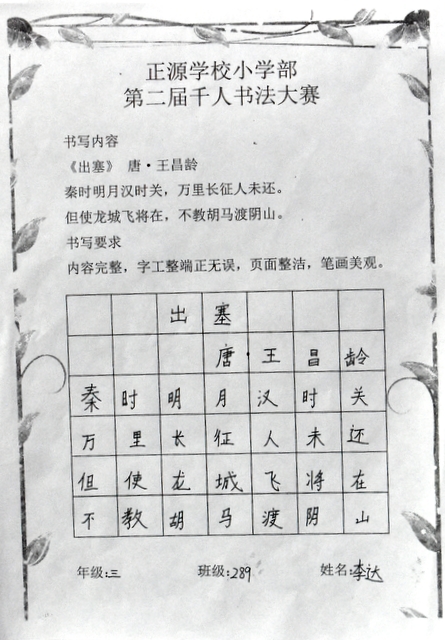 正源学校小学部
第二届千人书法大赛
书写内容
《出塞》 唐·王昌龄
秦时明月汉时关，万里长征人未还。
但使龙城飞将在，不教胡马渡阴山。
书写要求
内容完整，字工整端正无误，页面整洁，笔画美观。
出塞
唐·王昌龄
秦时明月汉时关
万里长征人未还
但使龙城飞将在
不教胡马渡阴山
年级:三 班级:289 姓名:李达